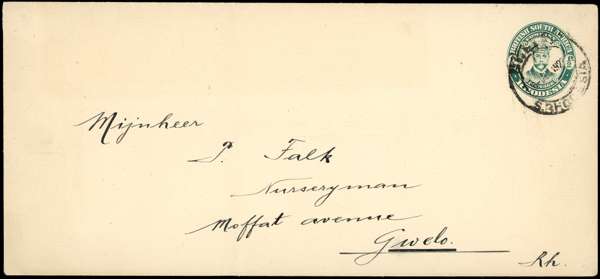 BRITISH SOUTH AFRICA
RHODESIA
S. RHODESIA
Mijnheer
P. Falk
Nurseryman
Moffat avenue
Gwelo.
Rh.